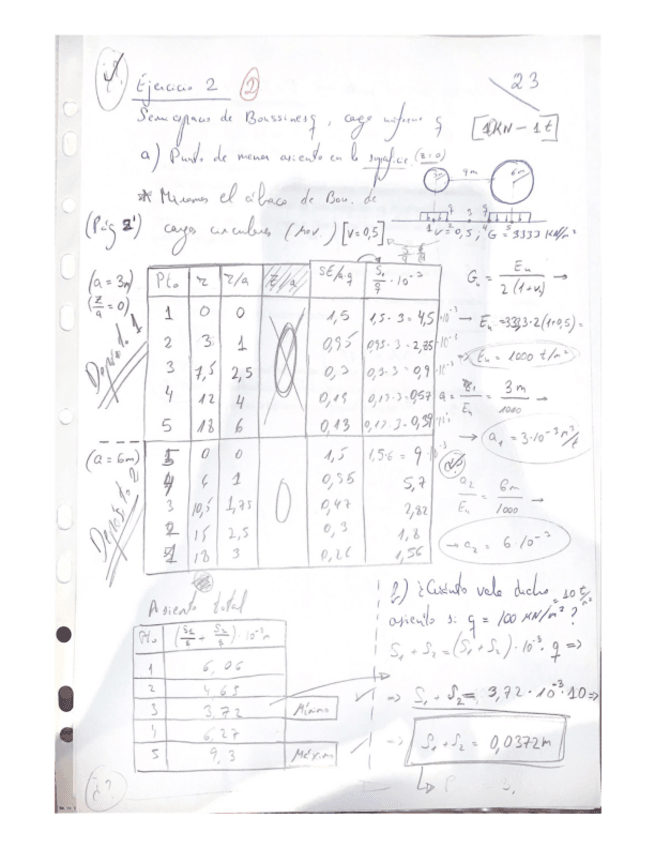 23
Ejercicio 2 2
Semiespacio de Boussinesq, carga uniforme q
[1KN - 1t]
a) Punto de menor asiento en la superficie (z=0)
9m 6m
* Miramos el ábaco de Bou. de
(Pág 2') cargas circulares (rev.) [v=0,5]
v=0,5; G=3333 KN/m²
(a=3m)
(z/a=0)
Depósito 1
Pto r r/a z/a SE/aq S₁/q · 10⁻³
1 0 0 1,5 1,5·3=4,5·10⁻³
2 3 1 0,95 0,95·3=2,85·10⁻³
3 7,5 2,5 0,3 0,3·3=0,9·10⁻³
4 12 4 0,19 0,19·3=0,57
5 18 6 0,13 0,13·3=0,39
(a=6m)
Depósito 2
5 0 0 0 1,5 1,5·6=9·10⁻³
4 6 1 0,95 5,7
3 10,5 1,75 0,47 2,82
2 15 2,5 0,3 1,8
1 18 3 0,26 1,56
Gᵤ = Eᵤ / 2(1+vᵤ) →
→ Eᵤ = 3333·2(1+0,5) =
⇒ Eᵤ = 1000 t/m²
a₁/Eᵤ = 3m/1000 →
→ a₁ = 3·10⁻³ m³/t
a₂/Eᵤ = 6m/1000 →
→ a₂ = 6·10⁻³
Asiento total
Pto (S₁/q + S₂/q)·10⁻³m
1 6,06
2 4,65
3 3,72 Mínimo
4 6,27
5 9,3 Máximo
b) ¿Cuánto vale dicho
asiento si q = 100 KN/m²? = 10 t/m²
S₁ + S₂ = (S₁ + S₂)·10⁻³·q ⇒
⇒ S₁ + S₂ = 3,72·10⁻³·10 ⇒
⇒ S₁ + S₂ = 0,0372m
¿?